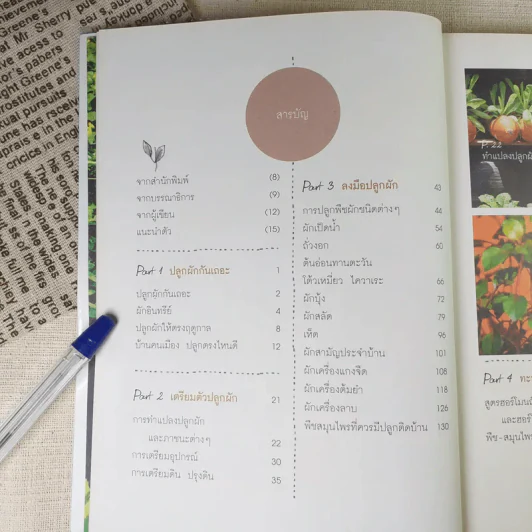 สารบัญ
จากสำนักพิมพ์ (8)
จากบรรณาธิการ (9)
จากผู้เขียน (12)
แนะนำตัว (15)
Part 1 ปลูกผักกันเถอะ 1
ปลูกผักกันเถอะ 2
ผักอินทรีย์ 4
ปลูกผักให้ตรงฤดูกาล 8
บ้านคนเมือง ปลูกตรงไหนดี 12
Part 2 เตรียมตัวปลูกผัก 21
การทำแปลงปลูกผัก
และภาชนะต่างๆ 22
การเตรียมอุปกรณ์ 30
การเตรียมดิน ปรุงดิน 35
Part 3 ลงมือปลูกผัก 43
การปลูกพืชผักชนิดต่างๆ 44
ผักเป็ดน้ำ 54
ถั่วงอก 60
ต้นอ่อนทานตะวัน
โต้วเหมี่ยว ไควาเระ 66
ผักบุ้ง 72
ผักสลัด 79
เห็ด 96
ผักสามัญประจำบ้าน 101
ผักเครื่องแกงจืด 108
ผักเครื่องต้มยำ 118
ผักเครื่องลาบ 126
พืชสมุนไพรที่ควรมีปลูกติดบ้าน 130
ทำแปลงปลูกผัก
Part 4
สูตรฮอร์โมน
และฮอร์
พืช-สมุนไพร